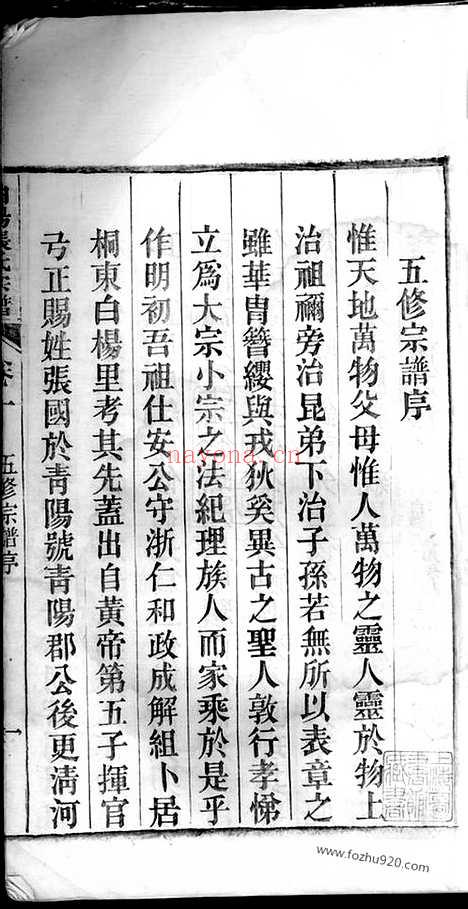 五修宗譜序
惟天地萬物父母惟人萬物之靈人靈於物上
治祖禰旁治昆弟下治子孫若無所以表章之
雖華胄簪纓與戎狄奚異古之聖人敦行孝悌
立爲大宗小宗之法紀理族人而家乘於是乎
作明初吾祖仕安公守浙仁和政成解組卜居
桐東白楊里考其先蓋出自黃帝第五子揮官
弓正賜姓張國於靑陽號靑陽郡公後更淸河
張氏宗譜
卷一
五修宗譜序
一
nayona.cn
www.fozhu920.com